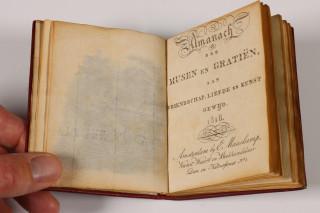 Almanach
DER
MUSEN EN GRATIËN,
AAN
VRIENDSCHAP, LIEFDE EN KUNST
GEWIJD.
Amsterdam by E. Maaskamp,
Dam en
N°1.